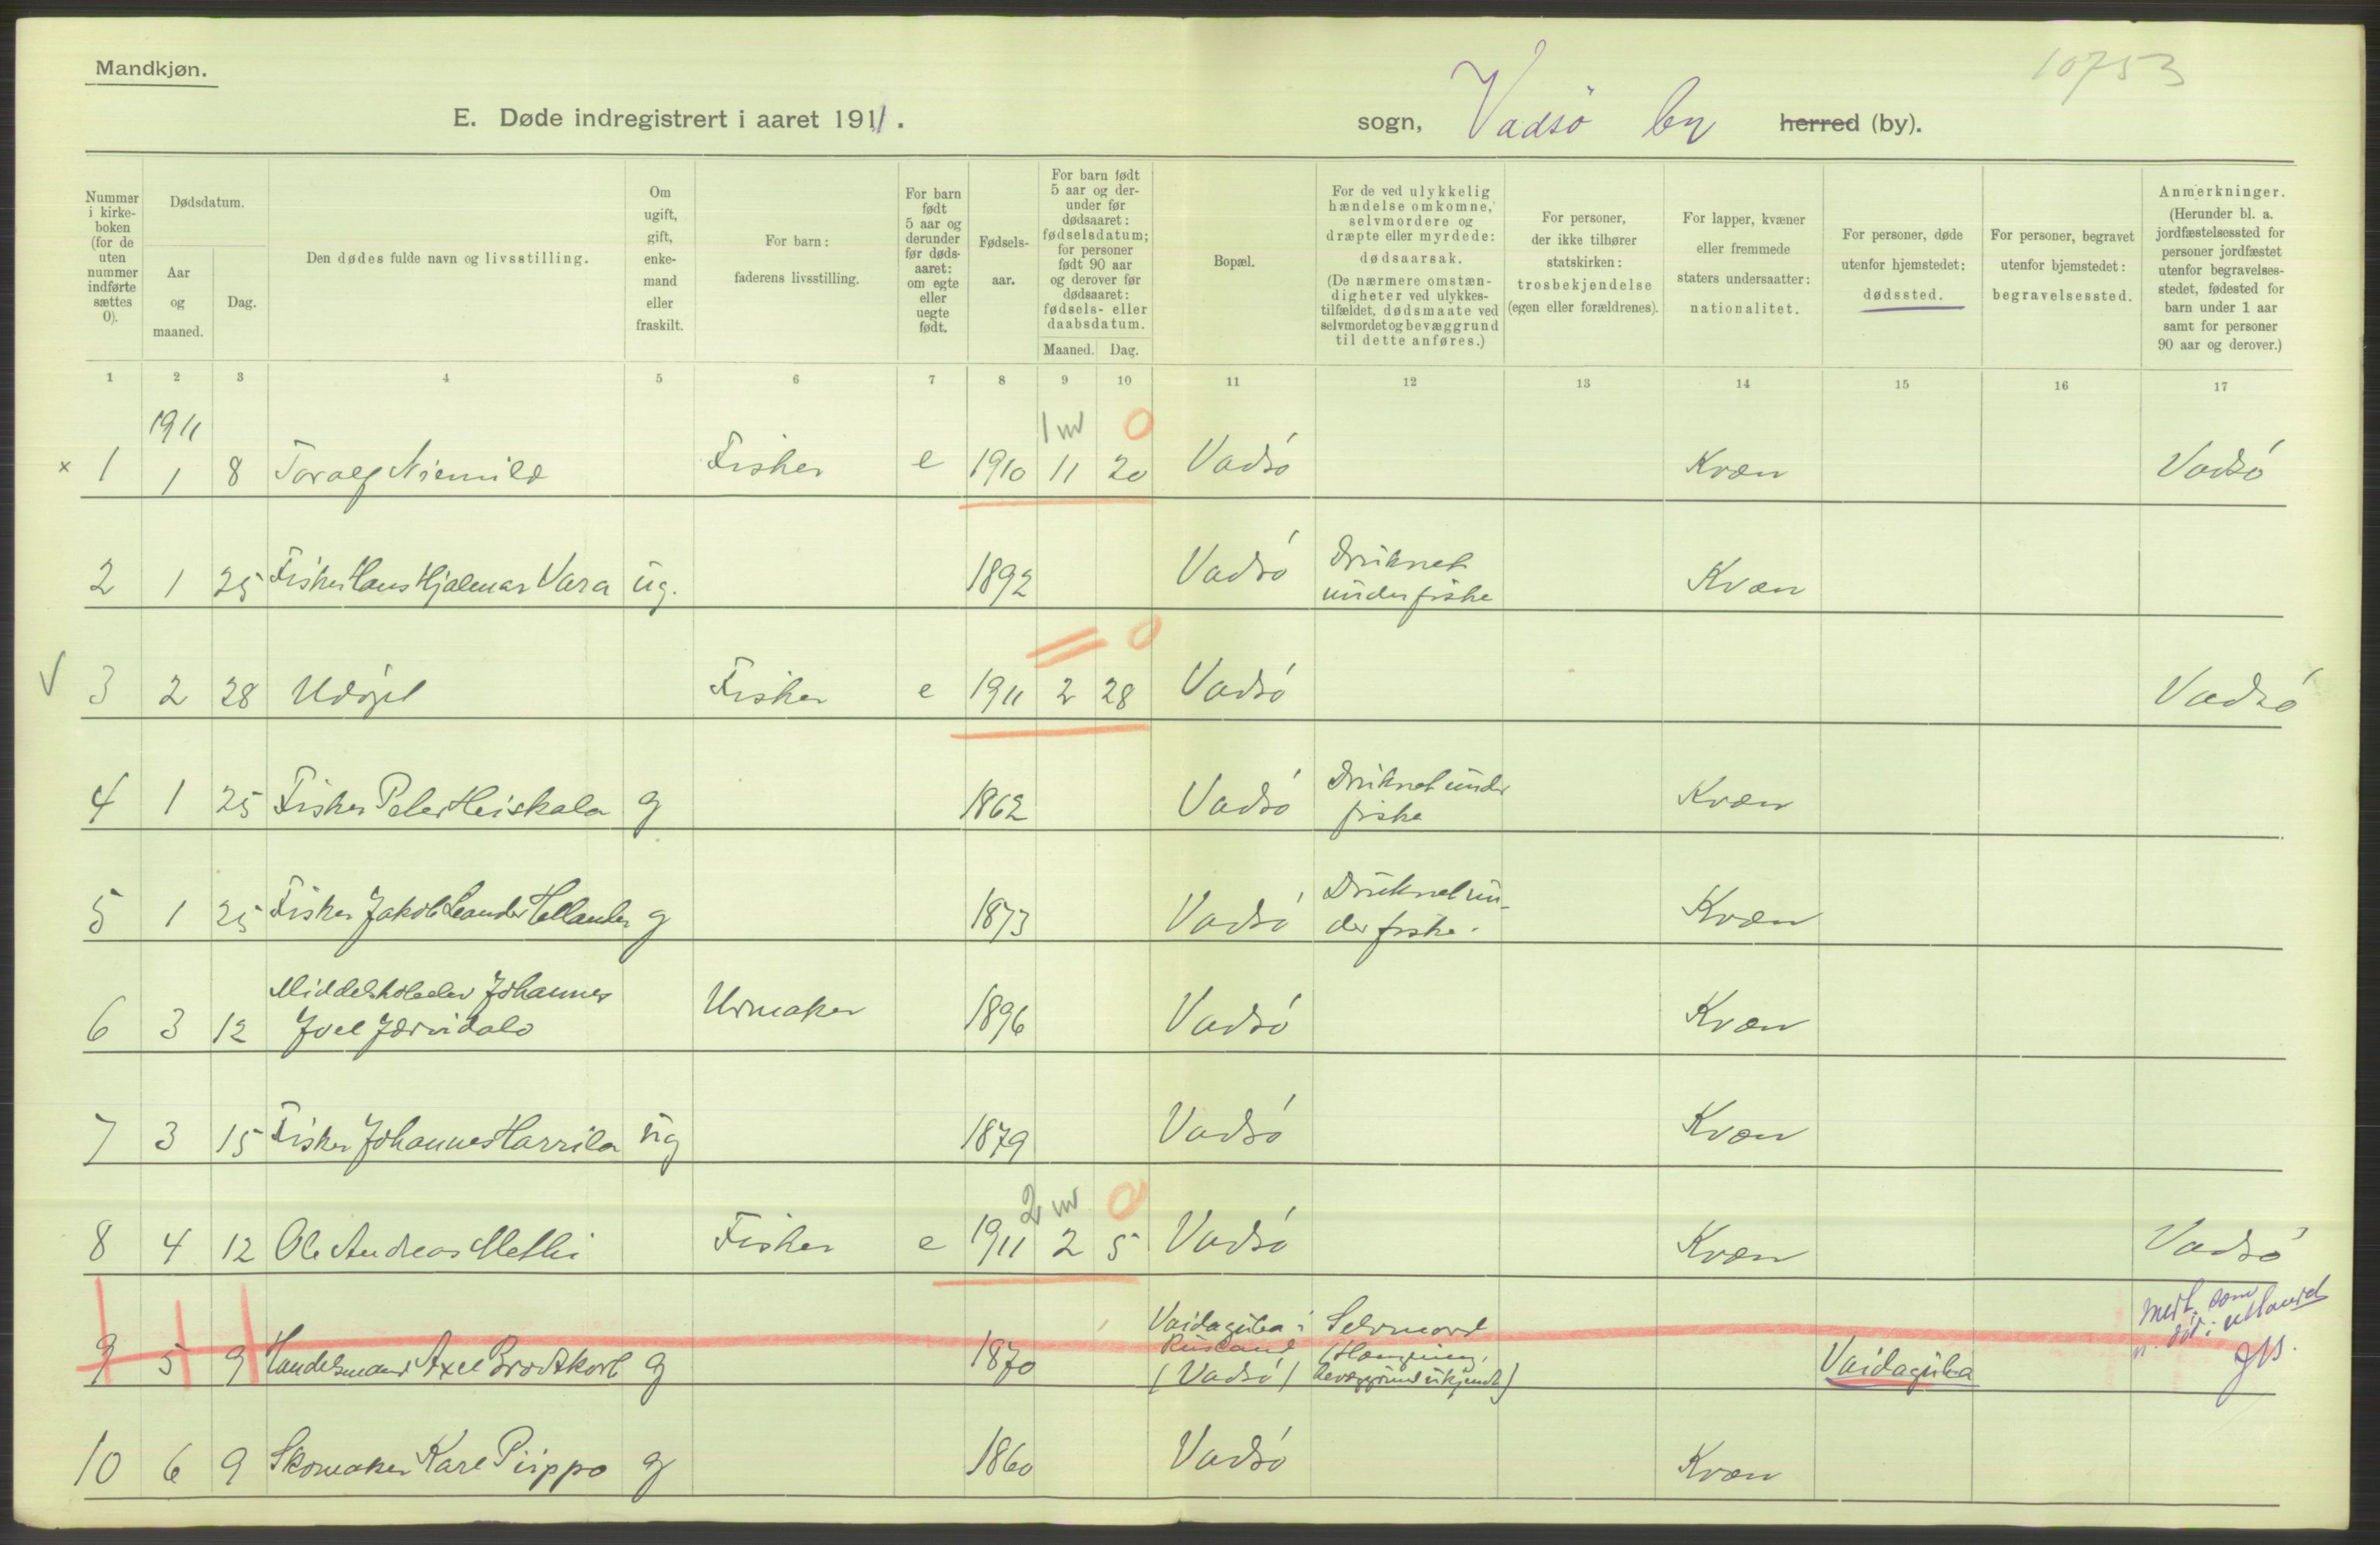 Mandkjøn.
10753
E. Døde indregistrert i aaret 1911.
sogn, Vadsö by herred (by).
Nummer i kirke-boken (for de uten nummer indførte sættes 0).
Dødsdatum.
Aar og maaned.
Dag.
Den dødes fulde navn og livsstilling.
Om ugift, gift, enke-mand eller fraskilt.
For barn: faderens livsstilling.
For barn født 5 aar og derunder før døds-aaret: om egte eller uegte født.
Fødsels-aar.
For barn født 5 aar og der-under før dødsaaret: fødselsdatum; for personer født 90 aar og derover før dødsaaret: fødsels- eller daabsdatum.
Maaned. Dag.
Bopæl.
For de ved ulykkelig hændelse omkomne, selvmordere og dræpte eller myrdede: dødsaarsak.
(De nærmere omstæn-digheter ved ulykkes-tilfældet, dødsmaate ved selvmordet og bevæggrund til dette anføres.)
For personer, der ikke tilhører statskirken: trosbekjendelse (egen eller forældrenes).
For lapper, kvæner eller fremmede staters undersaatter: nationalitet.
For personer, døde utenfor hjemstedet: dødssted.
For personer, begravet utenfor bjemstedet: begravelsessted.
Anmerkninger.
(Herunder bl. a. jordfæstelsessted for personer jordfæstet utenfor begravelses-stedet, fødested for barn under 1 aar samt for personer 90 aar og derover.)
1 2 3 4 5 6 7 8 9 10 11 12 13 14 15 16 17
1911
1 m 0
x 1 1 8 Toralf Niemilä Fisker e 1910 11 20 Vadsö Kvæn Vadsö
2 1 25 Fisker Hans Hjalmar Vara ug. 1892 Vadsö Druknet under fiske Kvæn
0
V 3 2 28 Udöpt Fisker e 1911 2 28 Vadsö Vadsö
4 1 25 Fisker Peter Heiskala g 1862 Vadsö Druknet under fiske Kvæn
5 1 25 Fisker Jakob Leander Hellander g 1873 Vadsö Druknet un-
der fiske. Kvæn
6 3 12 Middelskoleelev Johannes
Joel Järvidalo Urmaker 1896 Vadsö Kvæn
7 3 15 Fisker Johannes Harrila ug 1879 Vadsö Kvæn
2 m 0
8 4 12 Ole Andreas Methi Fisker e 1911 2 5 Vadsö Kvæn Vadsö
9 5 9 Handelsmand Axel Brodtkorb g 1870 Vaidaguba i Rusland (Vadsö) Selvmord (Hængning, bevæggrund ukjendt) Vaidaguba
som död i utlandet
10 6 9 Skomaker Karl Piippo g 1860 Vadsö Kvæn